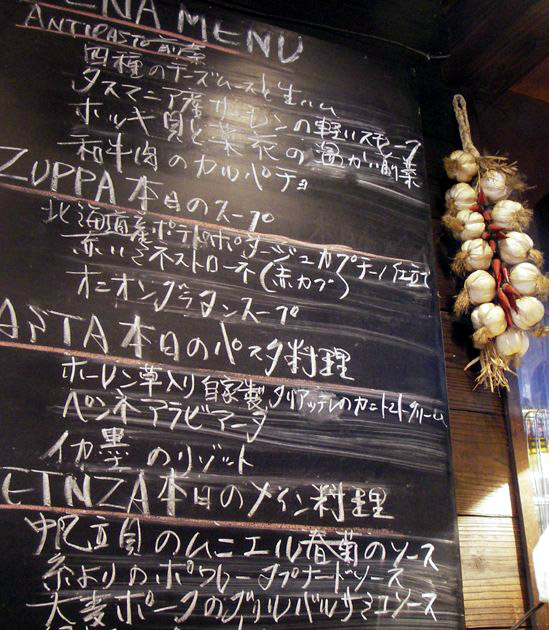 ENA MENU
ANTIPASTO 前菜
四種のチーズムースと生ハム
タスマニア産サーモンの軽いスモーク
ホッキ貝と菜花の温かい前菜
和牛肉のカルパチョ
ZUPPA 本日のスープ
北海道産ポテトのポタージュカプチーノ仕立て
赤いミネストローネ(赤カブ)
オニオングラタンスープ
APTA 本日のパスタ料理
ホーレン草入り自家製タリアッテレのカニトマトクリーム
ペンネアラビアータ
イカ墨のリゾット
ETNZA 本日のメイン料理
帆立貝のムニエル春菊のソース
糸よりのポワレータプナードソース
大麦ポークのグリルバルサミコソース